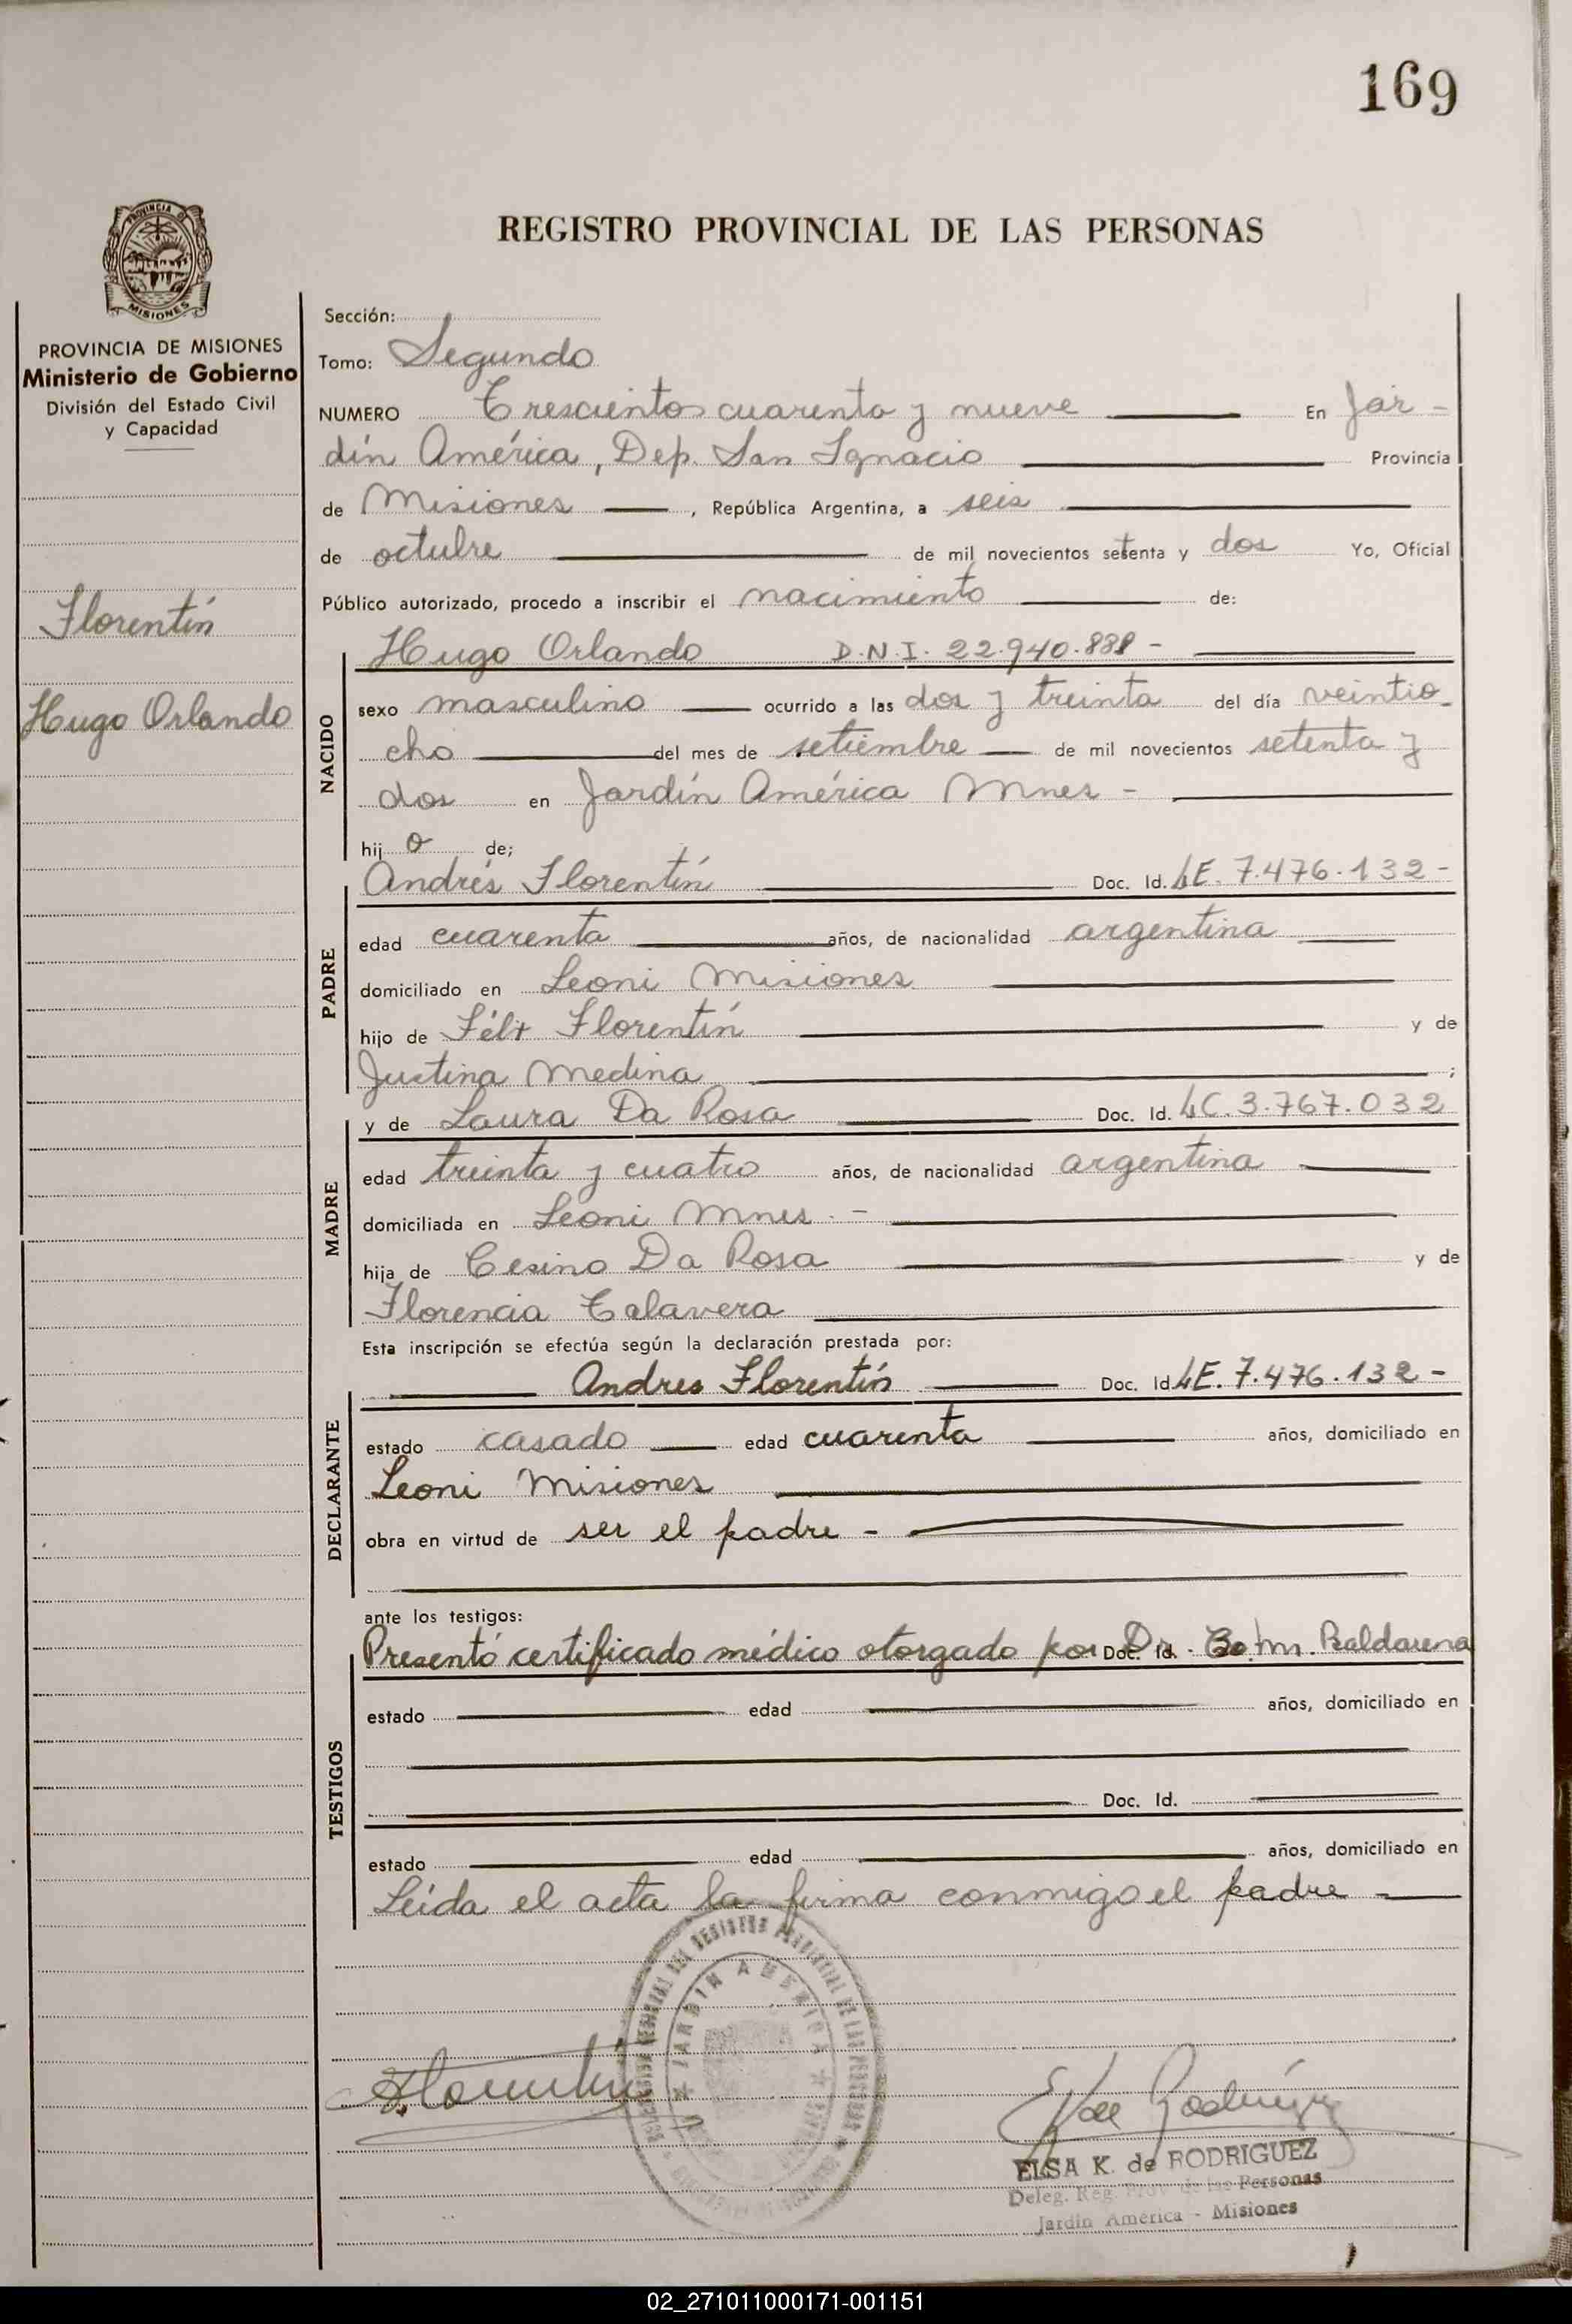 169
PROVINCIA DE
MISIONES
PROVINCIA DE MISIONES
Ministerio de Gobierno
División del Estado Civil
y Capacidad
Florentín
Hugo Orlando
REGISTRO PROVINCIAL DE LAS PERSONAS
Sección:
Tomo: Segundo
NUMERO Trescientos cuarenta y nueve En Jar-
dín América, Dep. San Ignacio Provincia
de Misiones, República Argentina, a seis
de octubre de mil novecientos setenta y dos Yo, Oficial
Público autorizado, procedo a inscribir el nacimiento de:
Hugo Orlando D.N.I. 22.940.838 -
NACIDO
sexo masculino ocurrido a las dos y treinta del día veintio-
cho del mes de setiembre de mil novecientos setenta y
dos en Jardín América Mnes -
hijo de;
Andrés Florentín Doc. Id. LE. 7.476.132 -
PADRE
edad cuarenta años, de nacionalidad argentina
domiciliado en Leoni Misiones
hijo de Félix Florentín y de
Justina Medina ;
y de Laura Da Rosa Doc. Id. LC. 3.767.032
MADRE
edad treinta y cuatro años, de nacionalidad argentina
domiciliada en Leoni Mnes. -
hija de Cesino Da Rosa y de
Florencia Talavera
Esta inscripción se efectúa según la declaración prestada por:
Andres Florentín Doc. Id. LE. 7.476.132 -
DECLARANTE
estado casado edad cuarenta años, domiciliado en
Leoni Misiones
obra en virtud de ser el padre -
ante los testigos:
Presentó certificado médico otorgado por Dr. Doc. Id. m. Baldarena
TESTIGOS
estado edad años, domiciliado en
Doc. Id.
estado edad años, domiciliado en
Leída el acta la firma conmigo el padre -
JARDIN AMERICA
ELSA K. de RODRIGUEZ
Deleg. Reg. Prov. de las Personas
Jardín América - Misiones
02_271011000171-001151